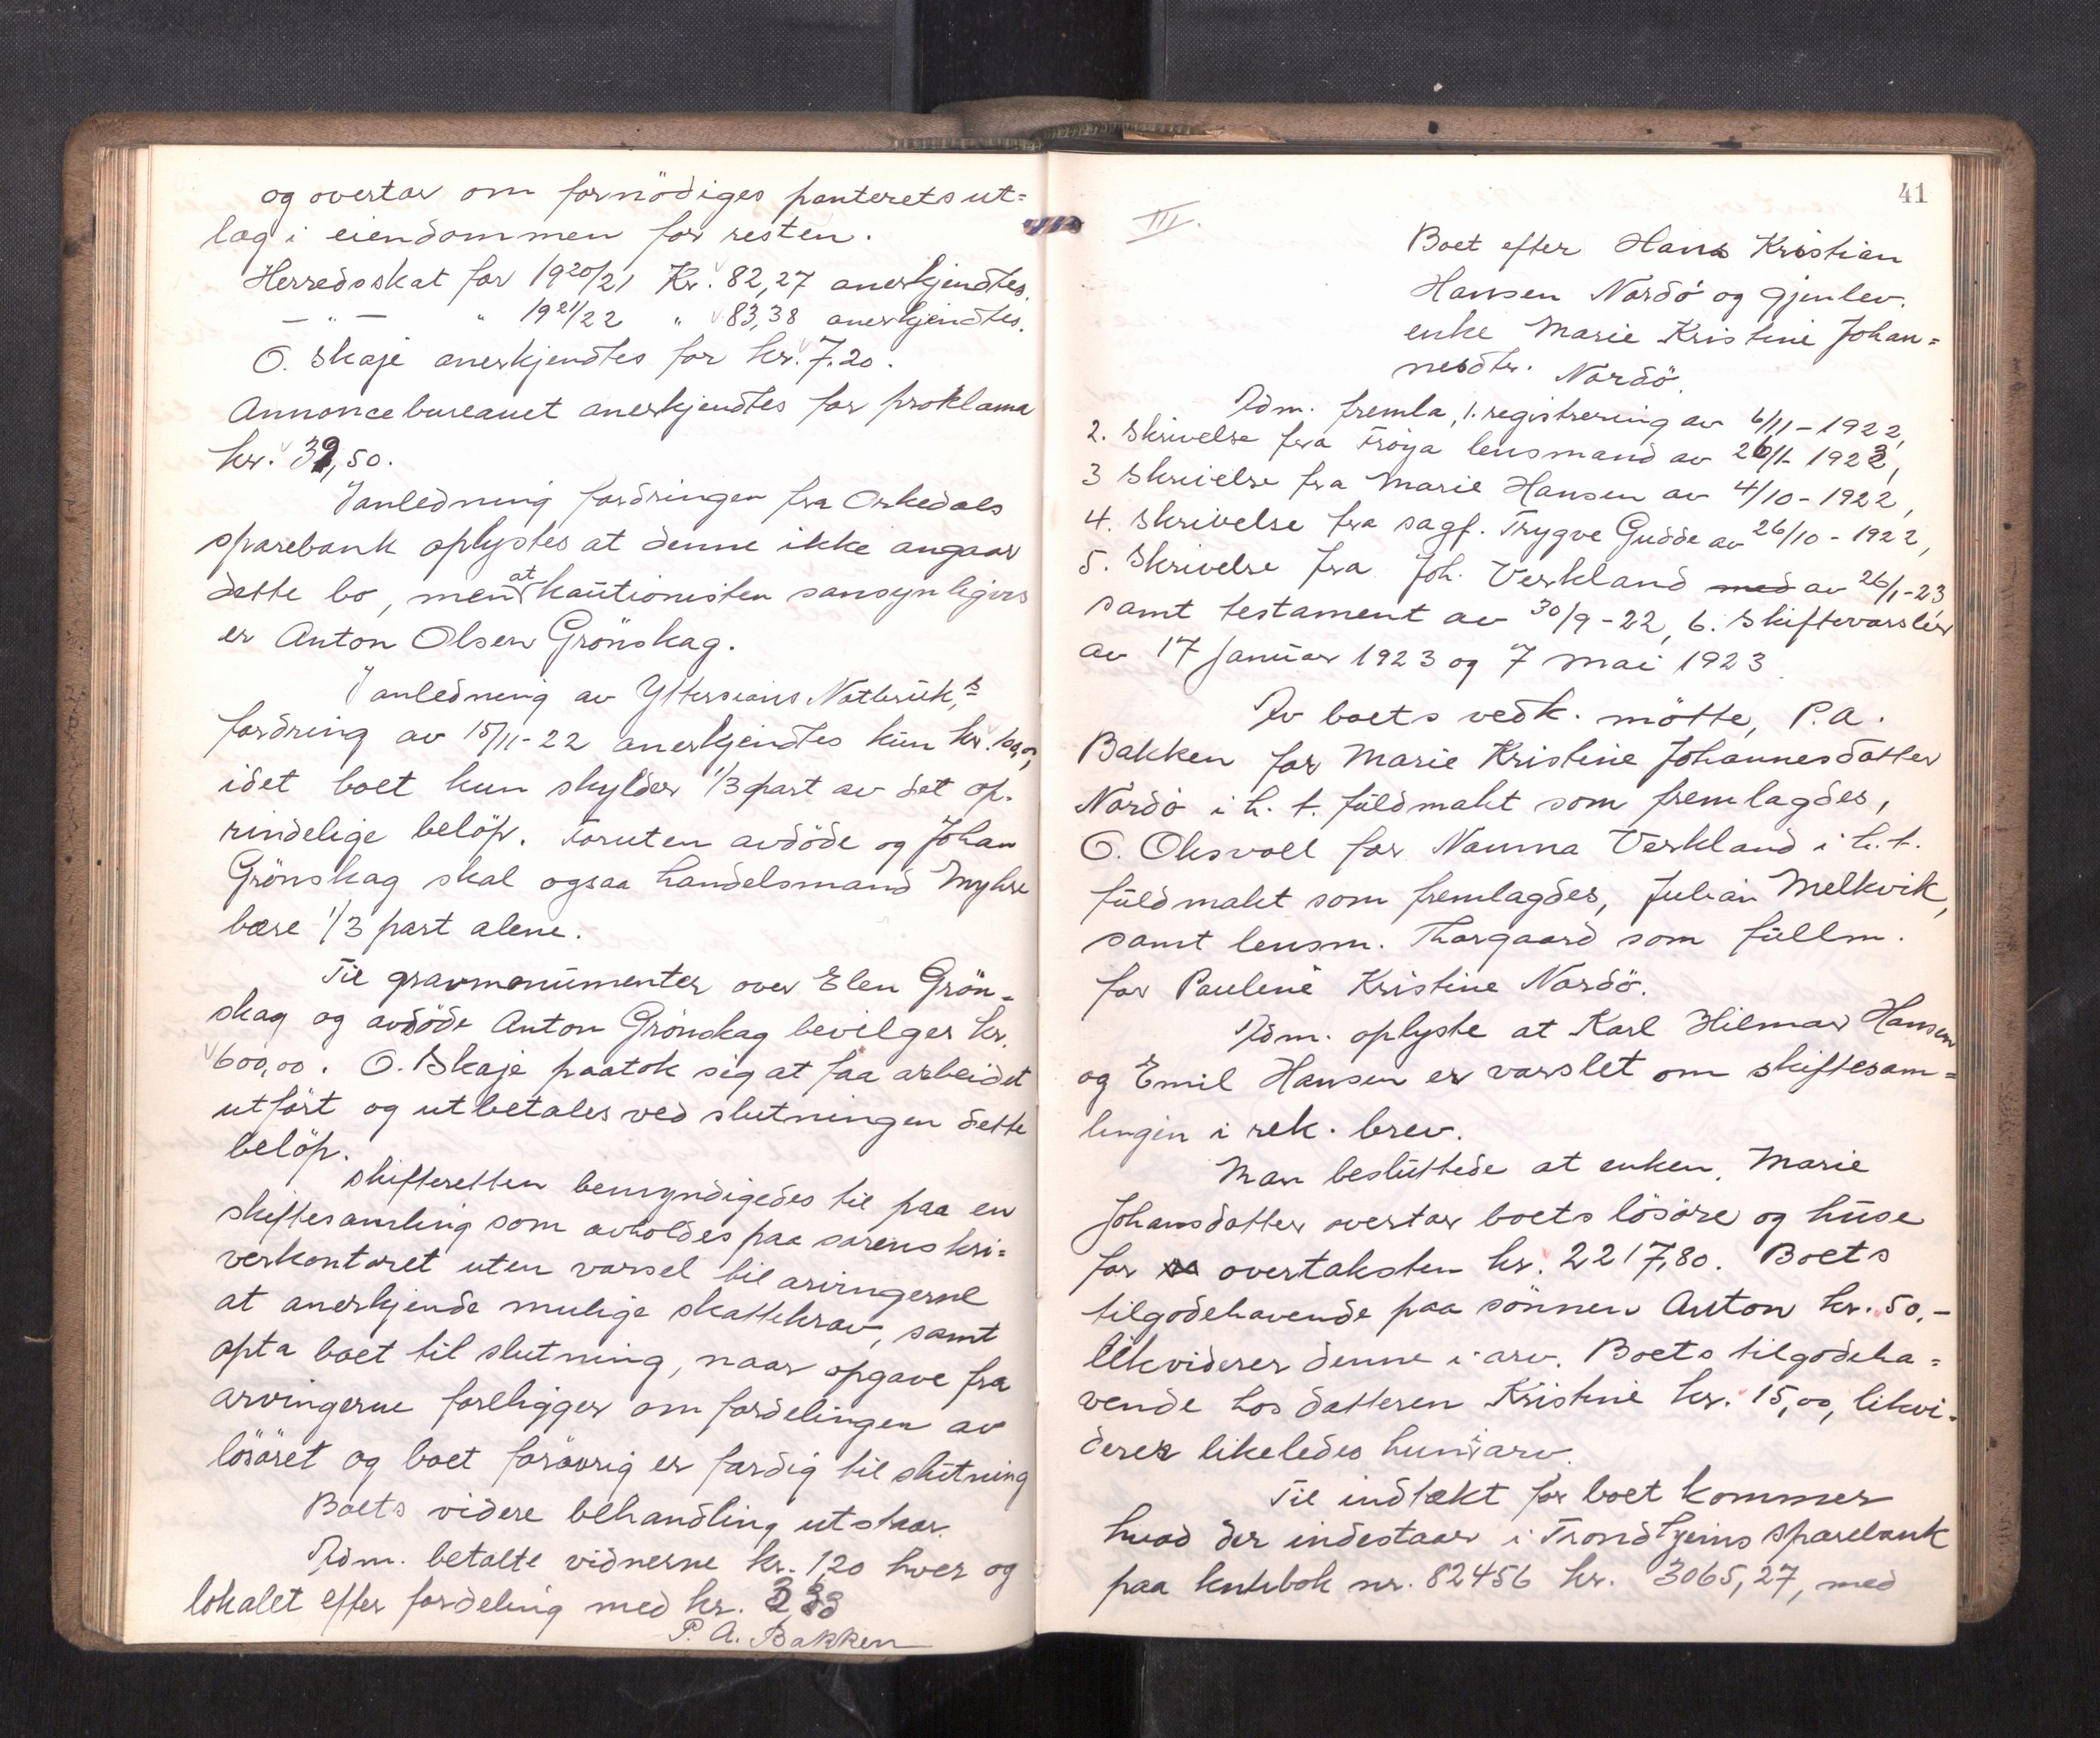 og overtar om fornödiges panterets ut=
læg i eiendommen for resten.
Herredsskat for 1920/21 Kr. 82,27 anerkjendtes.
— " — " 1921/22 " 83,38 anerkjendtes.
O. Skaje anerkjendtes for kr. 7.20.
Annoncebureauet anerkjendtes for proklama
kr. 39,50.
I anledning fordringen fra Orkedals
sparebank oplystes at denne ikke angaar
dette bo, men at kautionisten sansynligvis
er Anton Olsen Grönskag.
I anledning av Ytterseians Notbruk,s
fordring av 15/11-22 anerkjendtes kun kr. 100,00,
idet boet kun skylder 1/3 part av det op.
rindelige belöp. Foruten avdöde og Johan
Grönskag skal ogsaa handelsmand Myhre
bære 1/3 part alene.
Til gravmonumenter over Elen Grön=
skag og avdöde Anton Grönskag bevilges kr.
600,00. O. Skaje paatok sig at faa arbeidet
utfört og utbetales ved slutningen dette
belöp.
Skifteretten bemyndigedes til paa en
skiftesamling som avholdes paa sorenskri=
verkontoret uten varsel til arvingerne
at anerkjende mulige skattekrav, samt
opta boet til slutning, naar opgave fra
arvingerne foreligger om fordelingen av
lösöret og boet forövrig er færdig til slutning
Boets videre behandling utstaar.
Adm. betalte vidnerne kr. 1,20 hver og
lokalet efter fordeling med kr. 3,33
P. A. Bakken
41
III.
Boet efter Hans Kristian
Hansen Nordö og gjenlev.
enke Marie Kristine Johan=
nesdtr. Nordö.
Adm. fremla, 1. registrering av 6/11-1922,
2. Skrivelse fra Fröya lensmand av 26/1-1923,
3 Skrivelse fra Marie Hansen av 4/10-1922,
4. Skrivelse fra sagf. Trygve Gudde av 26/10-1922,
5. Skrivelse fra Joh. Verkland med av 26/1-23
samt testament av 30/9-22, 6. Skiftevarsler
av 17 Januar 1923 og 7 Mai 1923.
Av boets vedk. mötte, P.A.
Bakken for Marie Kristine Johannesdatter
Nordö i h. t. fuldmakt som fremlagdes,
O. Oksvoll for Nanna Verkland i h.t.
fuldmakt som fremlagdes, Julian Melkvik,
samt lensm. Thorgaard som fullm.
for Pauline Kristine Nordö.
Adm. oplyste at Karl Hilmar Hansen
og Emil Hansen er varslet om skiftesam=
lingen i rek. brev.
Man besluttede at enken, Marie
Johansdatter overtar boets lösöre og huse
for overtaksten kr. 2217,80. Boets
tilgodehavende paa sönnen Anton kr. 50.-
likviderer denne i arv. Boets tilgodeha=
vende hos datteren Kristine kr. 15,00, likvi=
derer likeledes hun i arv.
Til indtækt for boet kommer
hvad der indestaar i Trondhjems Sparebank
paa kntrbok nr. 82456 kr. 3065,27, med